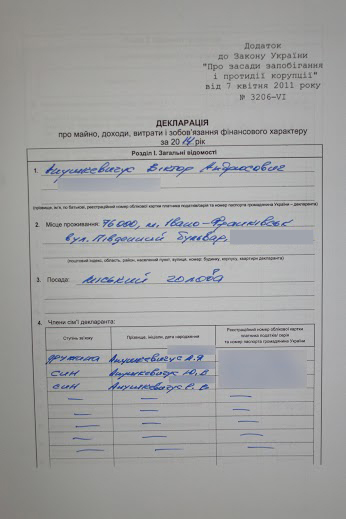 Додаток
до Закону України
"Про засади запобігання
і протидії корупції"
від 7 квітня 2011 року
№ 3206-VI
ДЕКЛАРАЦІЯ
про майно, доходи, витрати і зобов'язання фінансового характеру
за 2014 рік
Розділ I. Загальні відомості
1. Анушкевичус Віктор Андрюсович
(прізвище, ім'я, по батькові, реєстраційний номер облікової картки платника податків/серія та номер паспорта громадянина України – декларанта)
2. Місце проживання: 76000, м. Івано-Франківськ
вул. Південний бульвар,
(поштовий індекс, область, район, населений пункт, вулиця, номер: будинку, корпусу, квартири декларанта)
3. Посада: міський голова
4. Члени сім'ї декларанта:
Ступінь зв'язку Прізвище, ініціали, дата народження Реєстраційний номер облікової картки
платника податків/ серія
та номер паспорта громадянина України
дружина Анушкевичус
син Анушкевичус Ю.В
син Анушкевичус Є. В